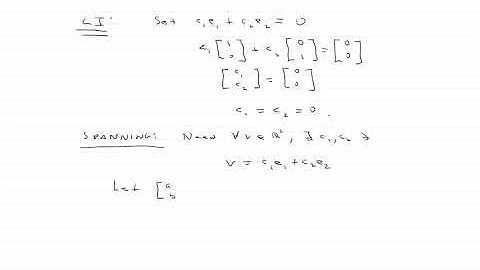 LI: Set c₁e₁ + c₂e₂ = 0
c₁ [1 0] + c₂ [0 1] = [0 0]
[c₁ c₂] = [0 0]
c₁ = c₂ = 0.
SPANNING: Need ∀ v ∈ ℝ², ∃ c₁, c₂ ∋
v = c₁e₁ + c₂e₂
Let [a b